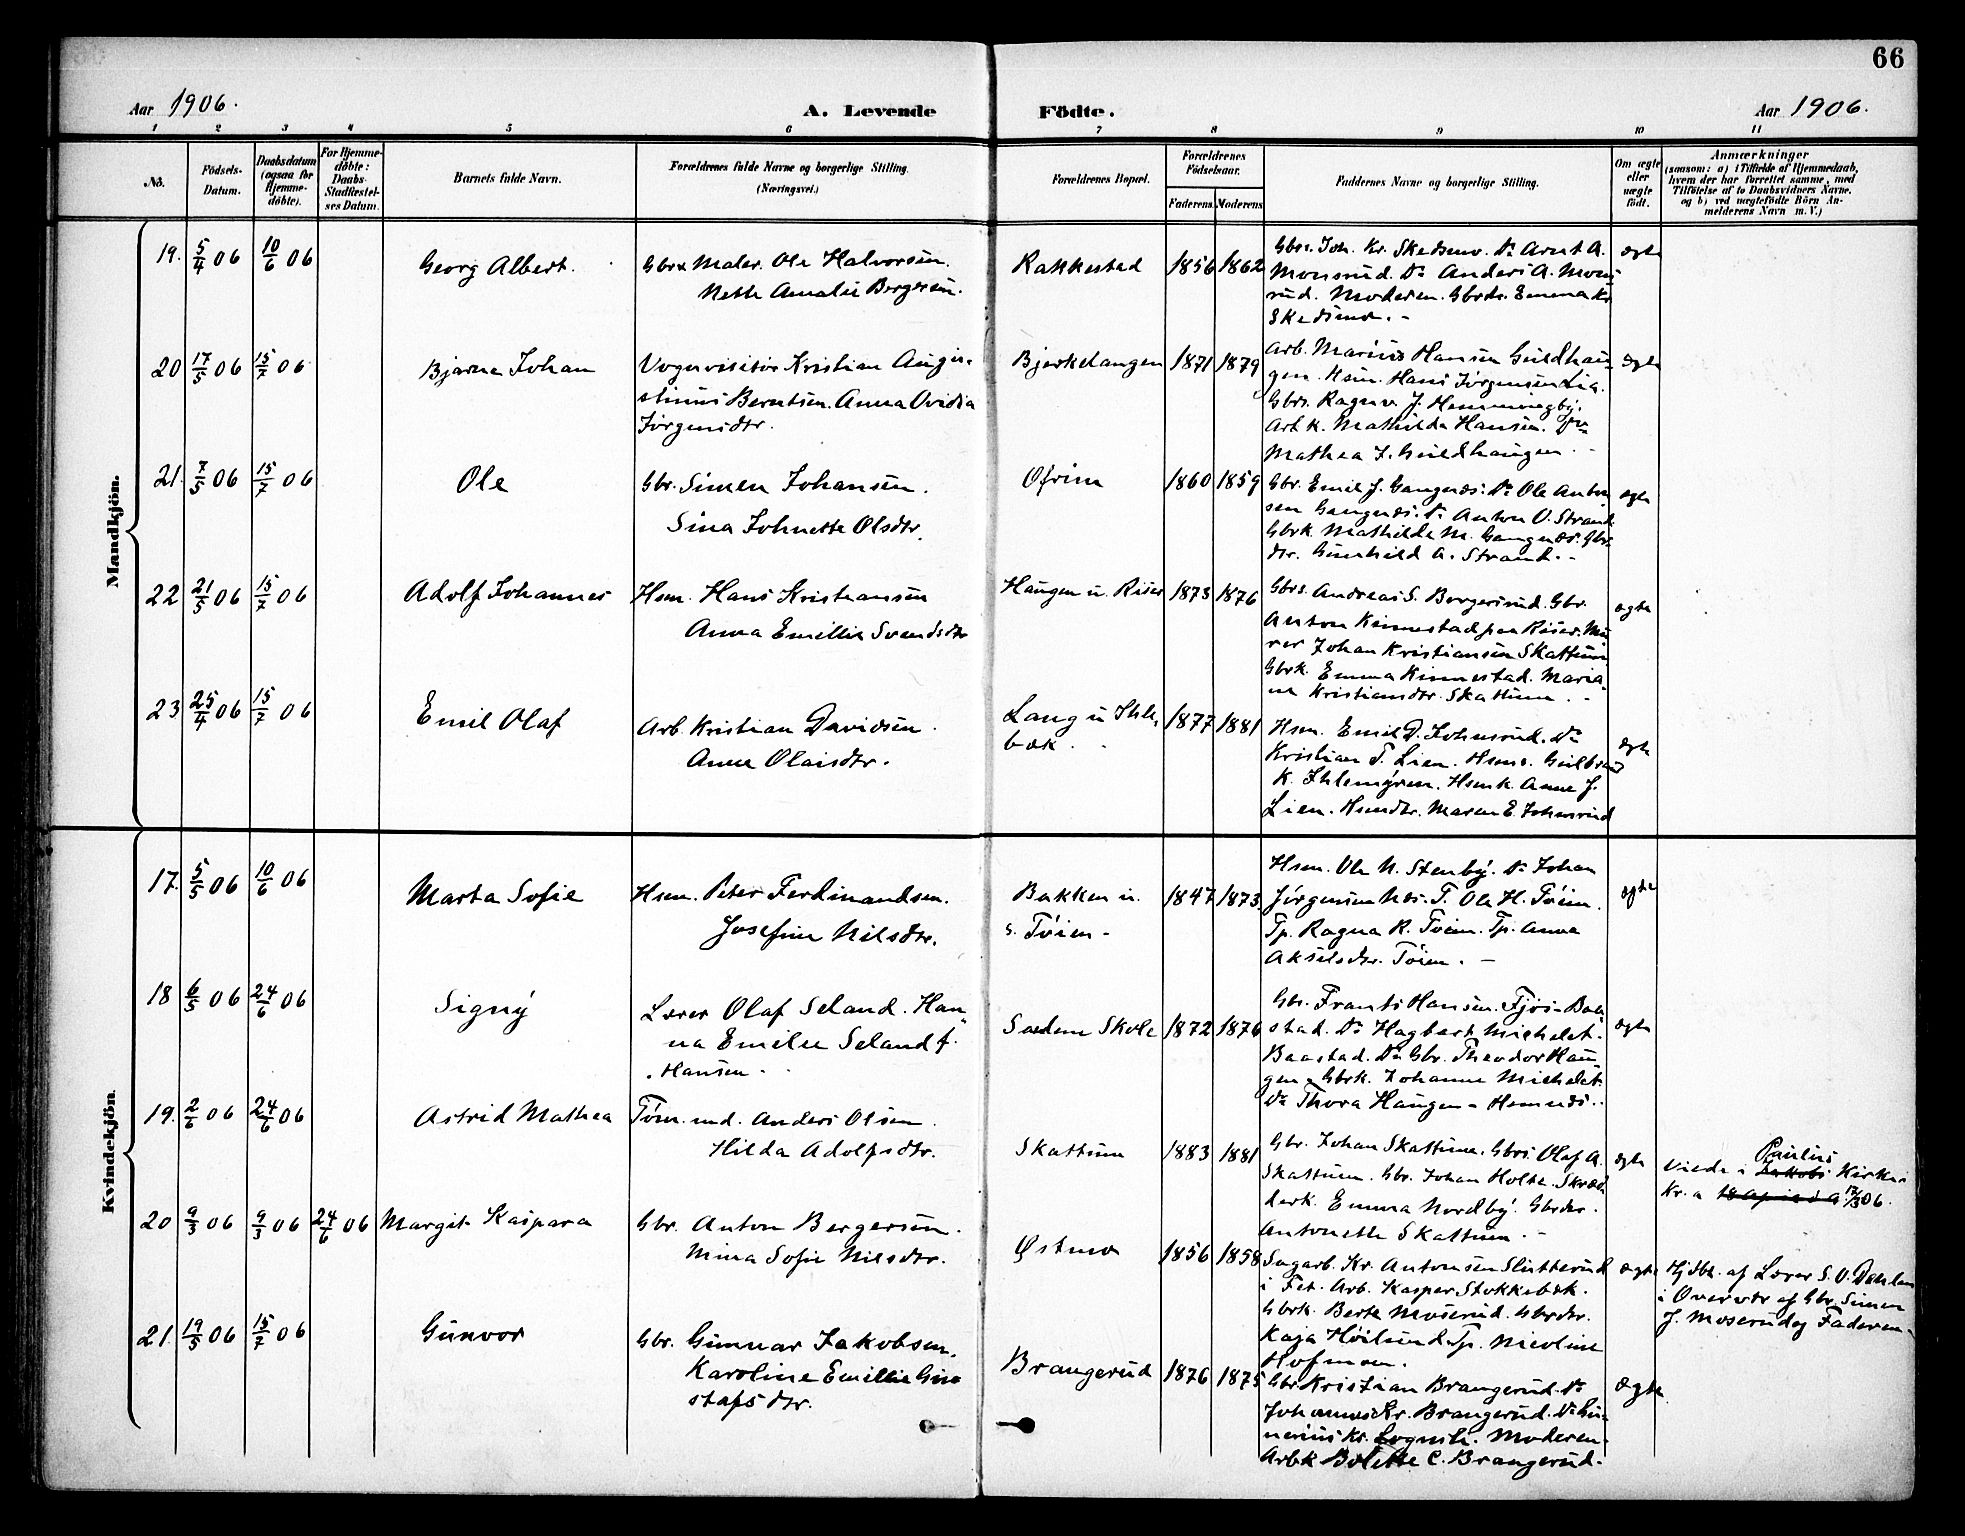 66
Aar 1906. A. Levende Födte. Aar 1906.
1 2 3 4 5 6 7 8 9 10 11
No. Födsels-Datum. Daabsdatum (ogsaa for Hjemme-döbte). For Hjemme-döbte: Daabs-Stadfæstel-ses Datum. Barnets fulde Navn. Forældrenes fulde Navne og borgerlige Stilling. (Næringsvei.) Forældrenes Bopæl. Forældrenes Födselsaar. Faderens. Moderens. Faddernes Navne og borgerlige Stilling. Om ægte eller uægte födt. Anmærkninger (saasom: a) i Tilfælde af Hjemmedaab, hvem der har forrettet samme, med Tilföielse af to Daabsvidners Navne. og b) ved uægtefödte Börn An-melderens Navn m. V.)
Mandkjön.
19. 5/4 06 10/6 06 Georg Albert. Gbr. Maler. Ole Halvorsen. Rakkestad 1856 1862 ægte
Nette Amalie Bergersen.
Gbrs. Joh. Kr. Skedsmo. Do Arnt A.
Monsrud. Do Anders A. Mons
rud. Moderen. Gbrdr. Emma Kr
Skedsmo. -
20 17/5 06 15/7 06 Bjarne Johan Vognvisitør Kristian Augu-
stinus Berntsen. Anna Ovidia
Jørgensdtr.
Bjerkelangen 1871 1879 ægte
Arb. Marius Hansen Guldhau-
gen. Hsm. Hans Jørgensen Lia.
Gbrs. Ragnv. J. Hemmingby.
Arb k. Mathilde Hansen.
Mathea J. Guldhaugen. -
21. 7/5 06 15/7 06 Ole Gbr. Simen Johansen.
Sina Johnette Olsdtr.
1860 1859 ægte
Gbr. Emil J. Gangnæs. Do Ole Anton
sen Gangnæs. Do Anton O. Strand
Gbrk. Mathilde M. Gangnæs. Gbr-
dtr. Gunhild A. Strand. -
22 21/5 06 15/7 06 Adolf Johannes Hsm. Hans Kristiansen
Anna Emillie Svendsdtr
Haugen u. Riser 1873 1876 ægte
Gbrs. Andreas S. Borgersrud. Gbr.
Anton Kinnestad paa Riser. Mu
rer Johan Kristiansen Skattum
Gbrk. Emma Kinnestad. Maria-
ne Kristiansdtr. Skattum. -
23 25/4 06 15/7 06 Emil Olaf Arb. Kristian Davidsen.
Anne Olaisdtr.
Lang u Ihle-
bæk. 1877 1881 ægte
Hsm. Emil D. Johnsrud. Do
Kristian T. Lien. Hsms. Gulbrand
K. Ihlemyren. Hsmk. Anne J.
Lien. Hsmdtr. Maren E. Johnsrud
Kvindekjön.
17. 5/5 06 10/6 06 Marta Sofie Hsm. Peter Ferdinandsen.
Josefine Nilsdtr.
Bakken u.
s. Tøien - 1847 1873 ægte
Hsm. Ole N. Stenby. Do Johan
Jørgensen Næs. T. Ole H. Tøien.
Tp. Ragna R. Tøien. Tp. Anna
Akselsdtr. Tøien. -
18 6/5 06 24/6 06 Signy Lærer Olaf Seland. Han-
na Emilie Seland f.
Hansen.
Sædem Skole 1872 1876 ægte
Gbr. Frants Hansen. Fjøs-Baa-
stad. Do Hagbart Michelet.
Baastad. Do Gbr. Theodor Hau
gen. Gbrk. Johanne Michelet.
Do Thora Haugen - Hemnæs. -
19. 2/6 06 24/6 06 Astrid Mathea Tøm. md. Anders Olsen.
Hilda Adolfsdtr.
Skattum 1883 1881 ægte
Gbr. Johan Skattum. Gbrs. Olaf A.
Skattum. Gbr. Johan Holte. Skræd
derk. Emma Nordby. Gbrdtr.
Antonette Skattum. -
Viede i Paulus Kirke i
Kr.a 17/3 06.
20 9/3 06 9/3 06 24/6 06 Margit Kaspara Gbr. Anton Bergersen.
Mina Sofie Nilsdtr.
Østmo 1856 1858 ægte
Sagarb. Kr. Antonsen Slutterud
i Fet. Arb. Kasper Stokkebæk.
Gbrk. Berte Moserud. Gbrdtr.
Kaja Høilund. Tp. Nicoline
Hofmoen.
Hjdbt. af Lærer S. O. Dahlen
i Overvær af Gbr. Simen
J. Moserud og Faderen.
21. 19/5 06 15/7 06 Gunvor Gbr. Gunnar Jakobsen.
Karoline Emillie Gu-
stafsdtr.
Brangerud 1876 1875 ægte
Gbr Kristian Brangerud. Do
Johannes Kr. Brangerud. Do Gu-
nerius Kr. Moderen.
Arbk Bolette C. Brangerud.